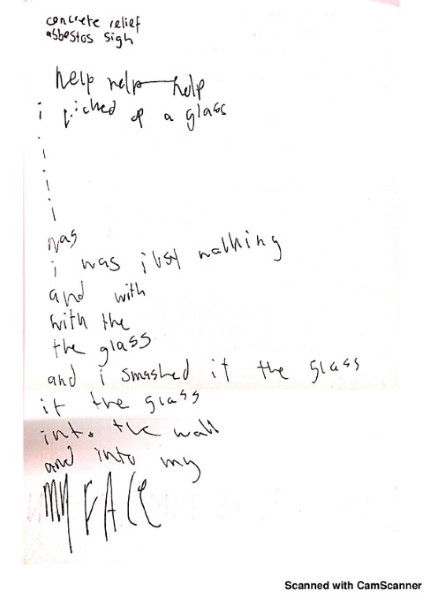 concrete relief
asbestos sigh
help help help
i picked up a glass
i
i
i
i
was
i was just walking
and with
with the
the glass
and i smashed it the glass
it the glass
into the wall
and into my
MY FACE
Scanned with CamScanner